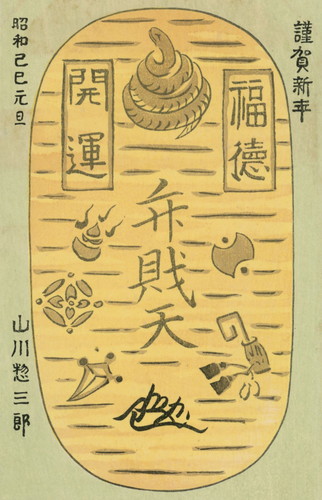 謹賀新年
福德
開運
弁財天
昭和己巳元旦
山川惣三郎